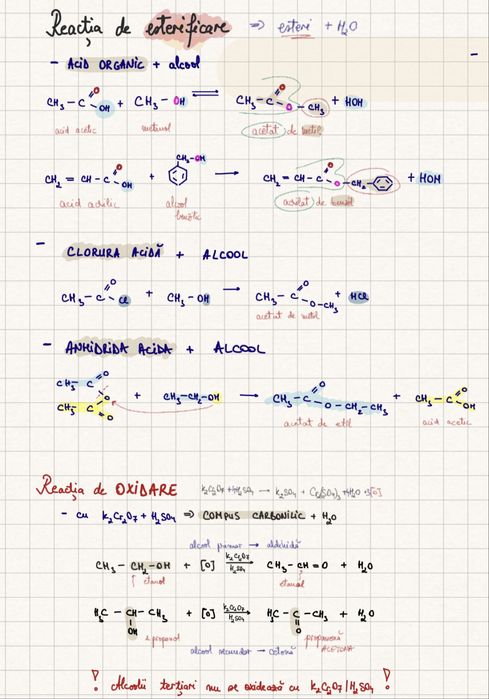 Reacția de esterificare => esteri + H₂O
- ACID ORGANIC + alcool
CH₃ - C =O OH + CH₃ - OH ⇌ CH₃ - C =O O - CH₃ + HOH
acid acetic metanol acetat de metil
CH₂ = CH - C =O OH + CH₂-OH → CH₂ = CH - C =O O - CH₂ + HOH
acid acrilic alcool benzilic acrilat de benzil
- CLORURA ACIDĂ + ALCOOL
CH₃ - C =O Cl + CH₃ - OH → CH₃ - C =O O - CH₃ + HCl
acetat de metil
- ANHIDRIDA ACIDA + ALCOOL
CH₃ - C =O O CH₃ - C =O + CH₃-CH₂-OH → CH₃ - C =O O - CH₂ - CH₃ + CH₃ - C =O OH
acetat de etil acid acetic
Reacția de OXIDARE K₂Cr₂O₇ + 4H₂SO₄ → K₂SO₄ + Cr₂(SO₄)₃ + 4H₂O + 3[O]
- cu K₂Cr₂O₇ + H₂SO₄ => COMPUS CARBONILIC + H₂O
alcool primar → aldehidă
CH₃ - CH₂ - OH + [O] K₂Cr₂O₇ H₂SO₄ → CH₃ - CH = O + H₂O
etanol etanal
H₃C - CH - CH₃ OH + [O] K₂Cr₂O₇ H₂SO₄ → H₃C - C - CH₃ O + H₂O
2 propanol propanonă
alcool secundar → cetonă ACETONA
! Alcoolii terțiari nu se oxidează cu K₂Cr₂O₇/H₂SO₄ !